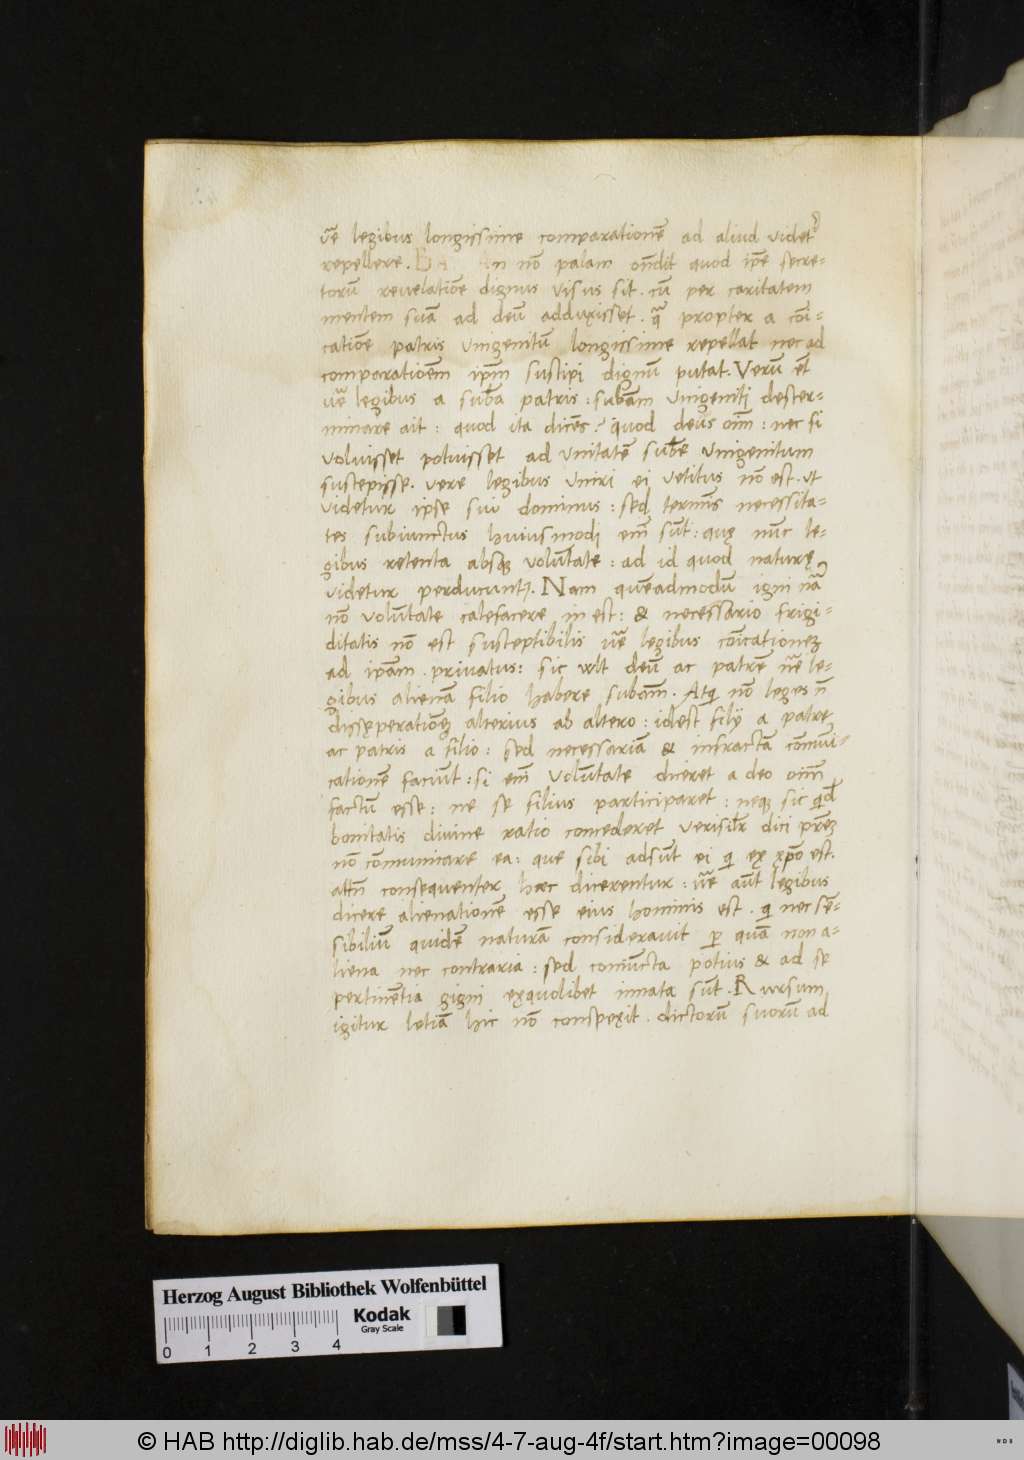 ur̃e legibus longissime comparationẽ ad aliud videt᷑
repellere. BA An nõ palam oñdit quod ip̃e secre-
torũ reuelatiõe dignus visus sit. cũ per caritatem
mentem suã ad deũ adduxisset. q̃ propter a cõi-
catiõe patris Vnigenitũ longissime repellat nec ad
comparatioẽm ip̃m suscipi dignũ putat. Verũ et̃
ur̃e legibus a subã patris: subãm Vnigenitj dester-
minare ait: quod ita dicẽs? quod deus oĩm: nec si
voluisset potuisset ad Vnitatẽ subẽ Vnigenitum
suscepisse. vere legibus Vniri ei vetitus nõ est. vt
videtur ipse sui dominus: sed termĩs necessita-
tes subiunctus huiusmodj em̃ sũt: quę nũc le-
gibus retenta absq̃ volũtate: ad id quod naturę
videtur perducunt᷑. Nam quẽadmodũ igni nã
nõ volũtate calefacere in est: & necessario frigi-
ditatis nõ est susceptibilis ur̃e legibus cõicationeȝ
ad ip̃am. priuatus: sic vult deũ ac patrẽ nr̃e le-
gibus alienã filio habere subãm. Atq̃ nõ leges ñ
dissęperatiõeȝ alterius ab altero: idest filÿ a patrę
ac patris a filio: sed necessariã & infractã cõmũi-
cationẽ faciũt: si em̃ volũtate diceret a deo oĩm
factũ esse: ne se filius participaret: neq̃ sic q̃d
bonitatis diuine ratio concederet verisil̃r dici pr̃eȝ
nõ cõmunicare ea: que sibi adsũt ei q̃ ex xp̃o est.
att̃n consequenter hæc dicerentur: ur̃e aũt legibus
dicere alienationẽ esse eius hominis est. q̃ nec sẽ-
sibiliũ quidẽ naturã considerauit ꝑ quã non a-
liena nec contraria: sed coniũcta potius & ad se
pertinẽtia gigni exquolibet innata sũt. Rursum
igitur letiã hic nõ conspexit. dictorũ suorũ ad
Herzog August Bibliothek Wolfenbüttel
Kodak
Gray Scale
0 1 2 3 4
© HAB http://diglib.hab.de/mss/4-7-aug-4f/start.htm?image=00098